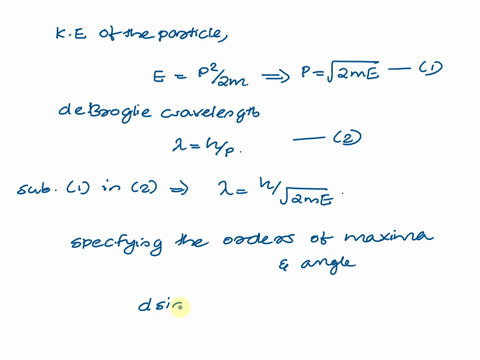 K.E of the particle,
E = P²/2m ⟹ P = √2mE — (1)
deBroglie wavelength
λ = h/P. — (2)
sub. (1) in (2) ⇒ λ = h/√2mE.
specifying the orders of maxima
& angle
dsin